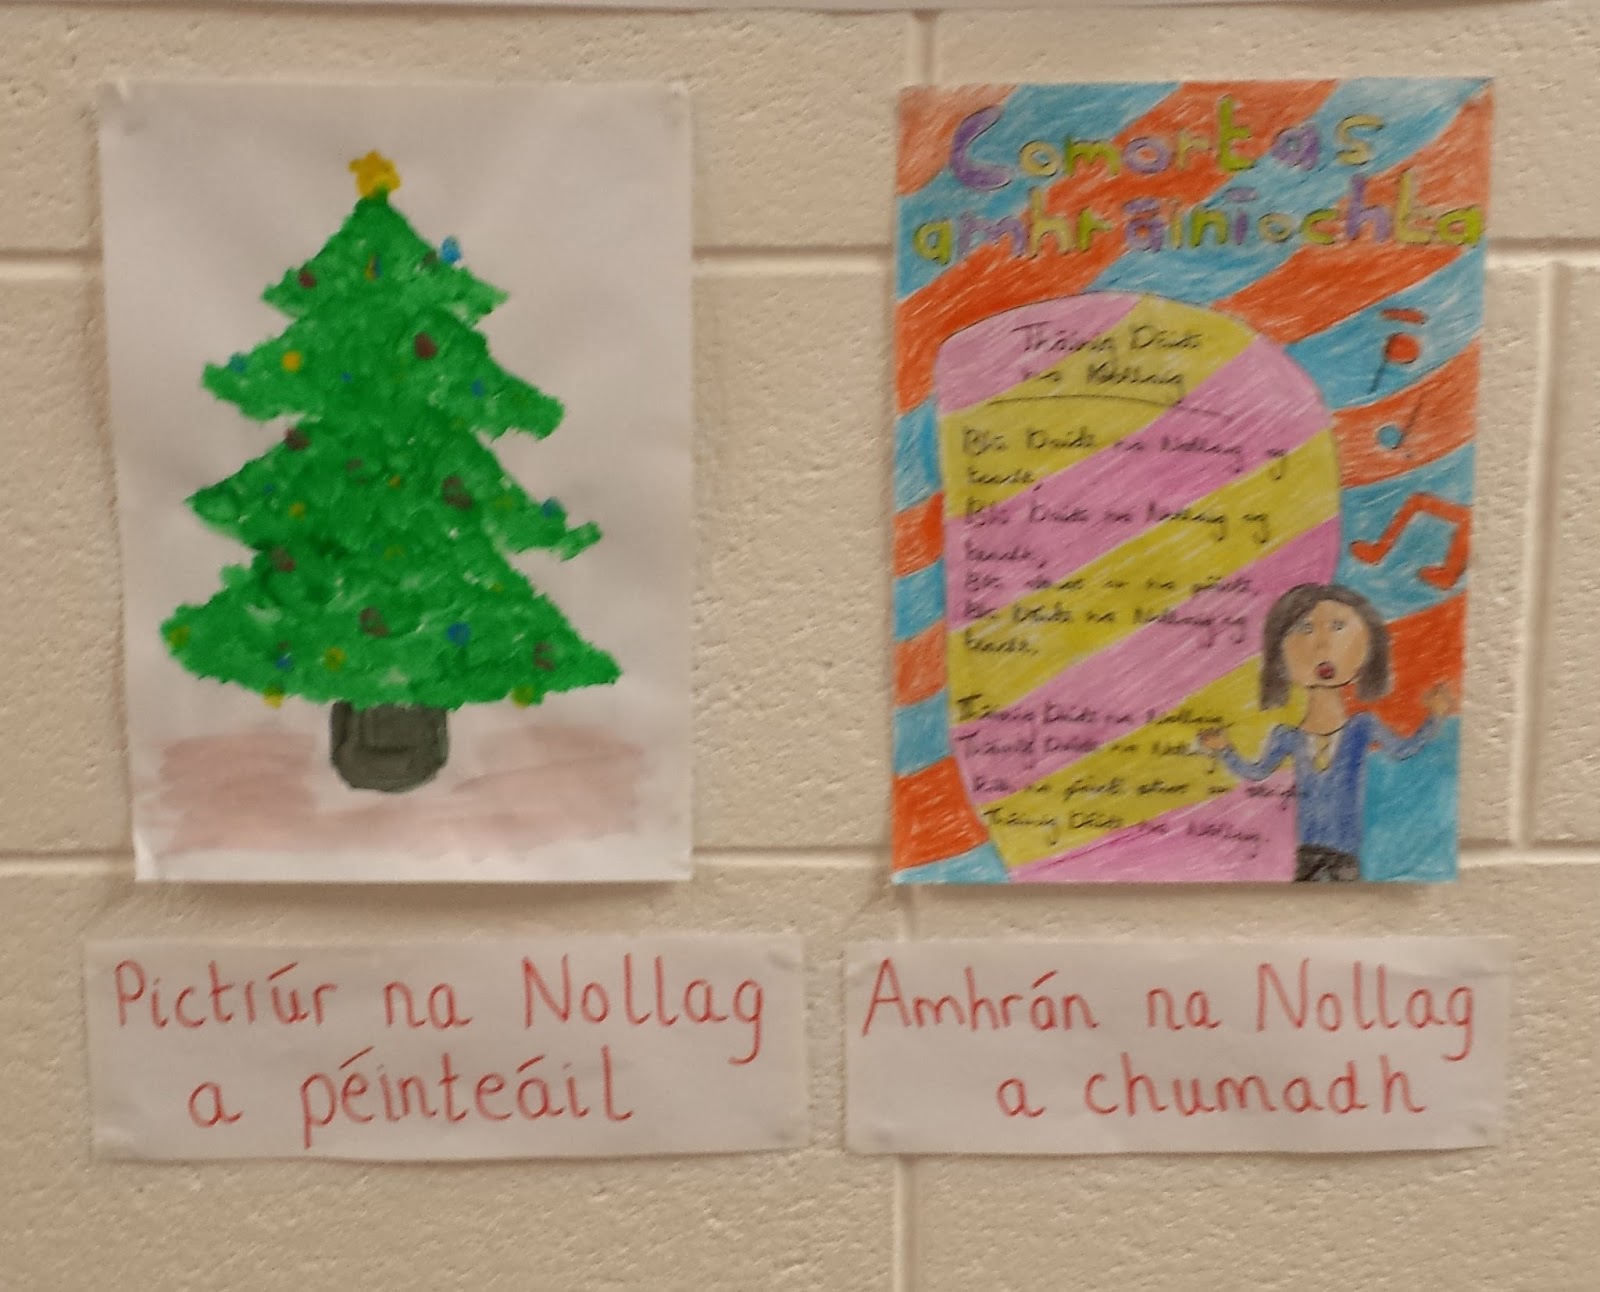 Comórtas
amhráiníochta
Tháinig Daidí
na Nollaig
Bhí Daidí na Nollaig ag
teacht,
Bhí Daidí na Nollaig ag
teacht,
Bhí na páistí,
Bhí Daidí na Nollaig ag
teacht,
Tháinig Daidí na Nollaig,
Tháinig Daidí na Nollaig
na páistí
Tháinig Daidí na Nollaig.
Pictiúr na Nollag
a péinteáil
Amhrán na Nollag
a chumadh